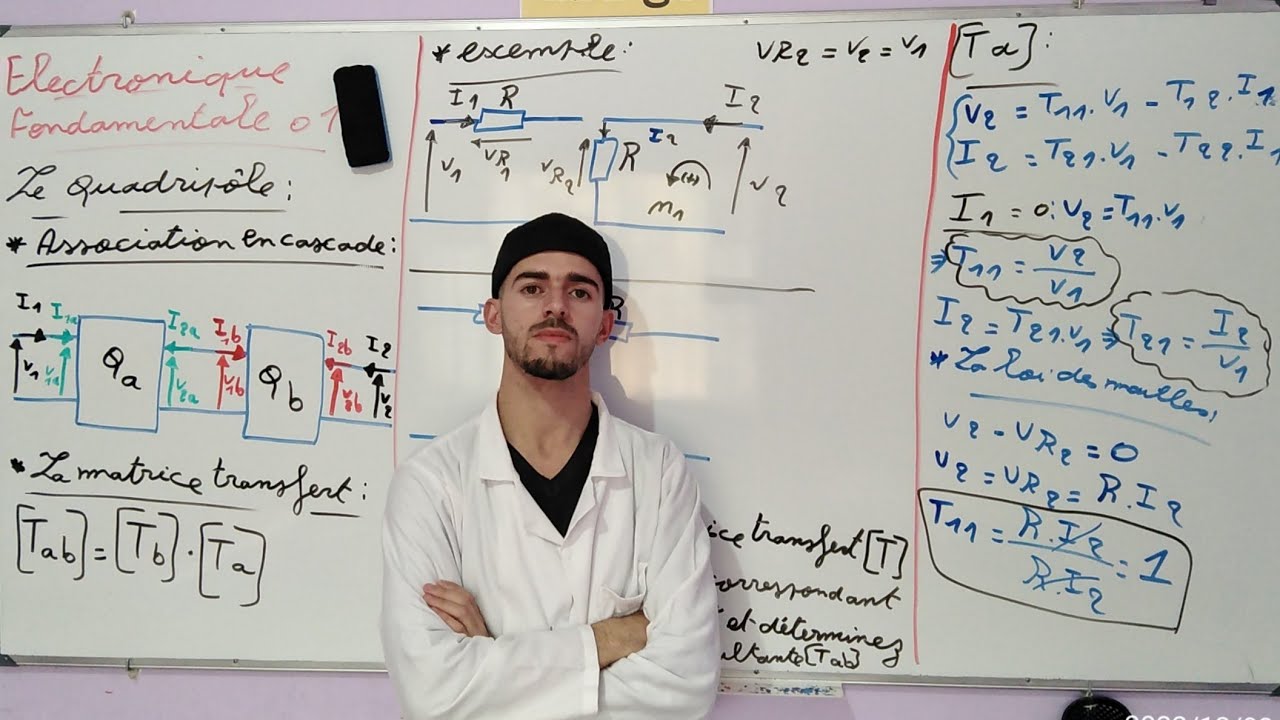 Electronique
Fondamentale 01
Le Quadripôle:
* Association en cascade:
I1 I1a I2a I1b I2b I2
V1 V1a Qa V2a V1b Qb V2b V2
* La matrice transfert:
[Tab] = [Tb] . [Ta]
* excemple:
VR2 = V2 = V1
I1 R I2
V1 VR1 VR2 R I2 (+) V2
m1
R
transfert [T]
correspondant
et déterminez
[Tab]
[Ta]:
V2 = T11.V1 - T12.I1
I2 = T21.V1 - T22.I1
I1 = 0: V2 = T11.V1
⇒ T11 = V2/V1
I2 = T21.V1 ⇒ T21 = I2/V1
* La loi des mailles,
V2 - VR2 = 0
V2 = VR2 = R.I2
T11 = R.I2/R.I2 = 1